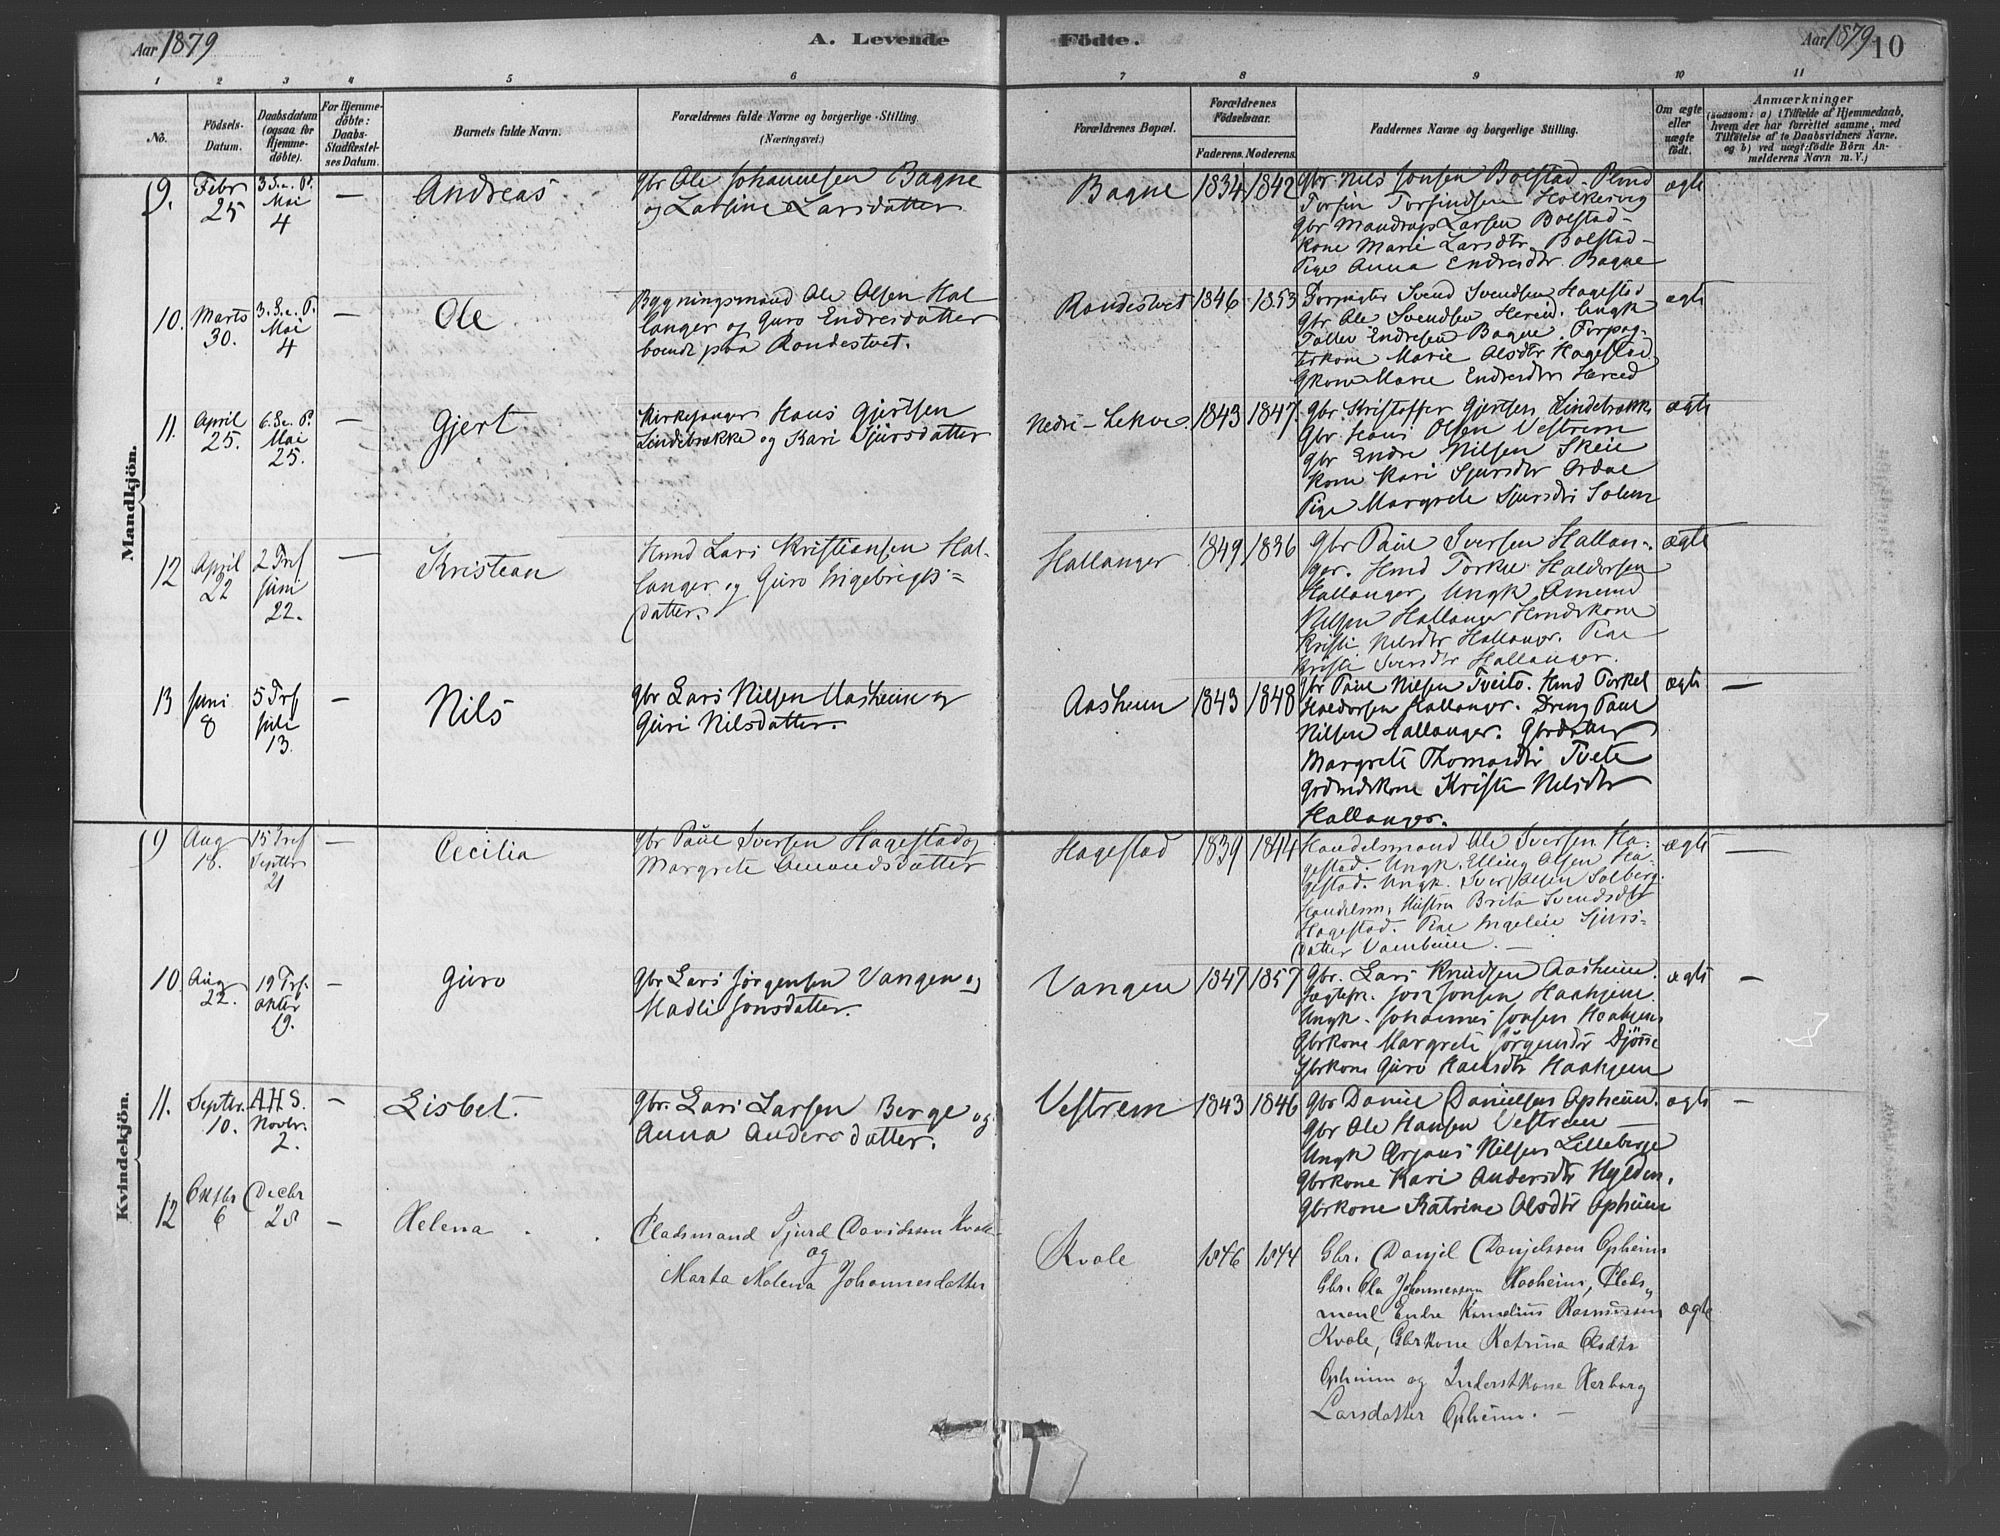 Aar 1879
A. Levende
Födte.
Aar 1879
10
1 2 3 4 5 6 7 8 9 10 11
No.
Födsels-
Datum.
Daabsdatum
(ogsaa for
Hjemme-
döbte).
For Hjemme-
döbte:
Daabs-
Stadfæstel-
ses Datum.
Barnets fulde Navn.
Forældrenes fulde Navne og borgerlige Stilling.
(Næringsvei.)
Forældrenes Bopæl.
Forældrenes
Födselsaar.
Faderens. Moderens.
Faddernes Navne og borgerlige Stilling.
Om ægte
eller
uægte
født.
Anmærkninger
(saasom: a) i Tilfælde af Hjemmedaab,
hvem der har forrettet samme, med
Tilføielse af to Daabsvidners Navne.
og b) ved uægt. fødte Börn An-
melderens Navn m. V.)
Mandkjön.
9.
Febr
25
3 S. e. P.
Mai
4
—
Andreas
Gbr Ole Johannesen Bagne
og Larsine Larsdatter
Bagne
1834
1842
Gbr Nils Jonsen Bolstad
Torfin Torfindsen Holkesvig
Gbr Mandrup Larsen Bolstad
Kone Marie Larsdtr. Bolstad
Pige Anna Endresdtr. Bagne
ægte
10.
Marts
30.
3. S. e. P.
Mai
4
—
Ole
Bygningsmand Ole Olsen Hal
langer og Guro Endresdatter
boende paa Rondestvet.
Rondestvet
1846
1853
Forpagter Svend Svendsen Hagestad
Gbr Ole Svendsen Hereid. Ungk
Tollev Endresen Bagne. Forpag-
terkone Marie Olsdtr Hagestad
Gkone Marie Endresdtr Hereid
ægte
11.
April
25.
6. S. e. P.
Mai
25.
—
Gjert
Kirkesanger Hans Gjertsen
Lindebrække og Kari Sjursdatter
Nedre-Lekve
1843
1847.
Gbr. Kristoffer Gjertsen Lindebrække
Gbr. Hans Olsen Vestrem
Gbr Endre Nilsen Skeie
Kone Kari Sjursdtr
Pige Margrete Sjursdtr Solem
ægte
12
April
22
2 Tref
Juni
22.
—
Kristian
Hmd Lars Kristiansen Hal-
langer og Guro Ingebrigts=
datter.
Hallanger
1849
1836
Gbr Paul Iversen Hallan-
ger. Hmd Torkel Haldorsen
Hallanger, Ungk. Amund
Nilsen Hallanger Hmdskone
Kristi Nilsdtr Hallanger. Pige
Kristi Iversdtr Hallanger.
ægte
—
13
Juni
8
5 Trf
Juli
13.
—
Nils
Gbr Lars Nilsen Aasheim og
Guri Nilsdatter.
Aasheim
1843
1848
Gbr Paul Nilsen Tveito. Hmd Torkel
Haldorsen Hallanger. Dreng Paul
Nilsen Hallanger. Gbrdatter
Margrete Thomasdtr Tveite
Kristi Nilsdtr
Hallanger.
ægte
—
Kvindekjön.
9
Aug
18.
15 Tref
Septbr
21
—
Cecilia
Gbr Paul Iversen Hagestad og
Margrete Amundsdatter
Hagestad
1839
1844
Handelsmand Ole Iversen Ha-
gestad. Ungk. Elling Olsen Ha-
gestad. Ungk. Iver Olsen Solberg.
Handelsm. Hustru Brita Svendsdtr
Hagestad. Pige Ingeleiv Sjurs-
datter Vambheim. —
ægte
—
10
Aug
22.
19 Trf.
Oktbr
19.
—
Guro
Gbr Lars Jørgensen Vangen og
Madli Jonsdatter.
Vangen
1847
1857
Gbr. Lars Knudsen Aasheim.
Jon Jonsen Haaheim.
Ungk. Johannes Jonsen Haaheim
Gbrkone Margrete Jörgensdtr Djönne
Gbrkone Guro Haaheim
ægte
—
11.
Septbr.
10.
A.H.S.
Novbr.
2.
—
Lisbet.
Gbr. Lars Larsen Berge og
Anna Andersdatter.
Vestrem
1843
1846
Gbr Daniel Danielsen Opheim.
Gbr Ole Hansen Vestrem —
Ungk Ørjans Nilsen Lilleberge
Gbrkone Kari Andersdtr Hylden.
Gbrkone Katrine Olsdtr Opheim
ægte
—
12
Oktbr
6
Decbr
28
—
Helena
Pladsmand Sjurd Davidsson Kvale
og
Marta Malena Johannesdatter
Kvale
1846
1844
Gbr. Danjel Danjelsson Opheim
Gbr. Ola Johannesson Haaheim, Plads„
mand Endre Kornelius Rasmusson
Kvale, Gbrkone Katrina Olsdtr
Opheim og Inderstkone Herborg
Larsdatter Opheim. —
ægte